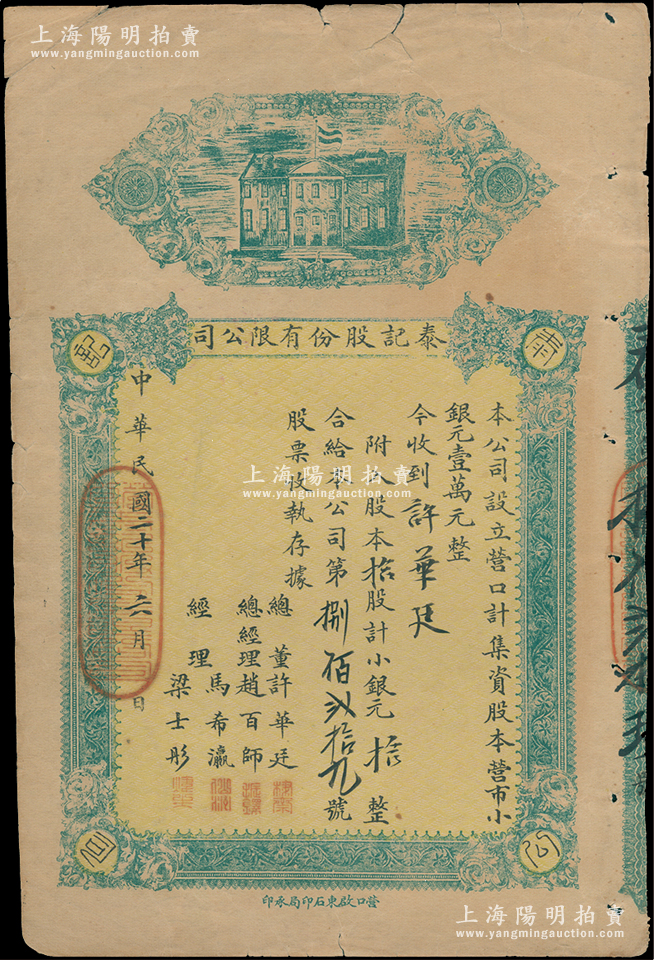 上海陽明拍賣
www.yangmingauction.com
泰記股份有限公司
泰
記
公
司
本公司設立營口計集資股本營市小
銀元壹萬元整
今收到許華廷
附入股本拾股計小銀元拾整
合給本公司第捌佰貳拾九號
股票收執存據
總董許華廷
總經理趙百師
馬希瀛
經理梁士彤
中華民國二十年六月日
上海陽明拍賣
www.yangmingauction.com
營口啟東石印局承印
上海陽明拍賣
www.yangmingauction.com